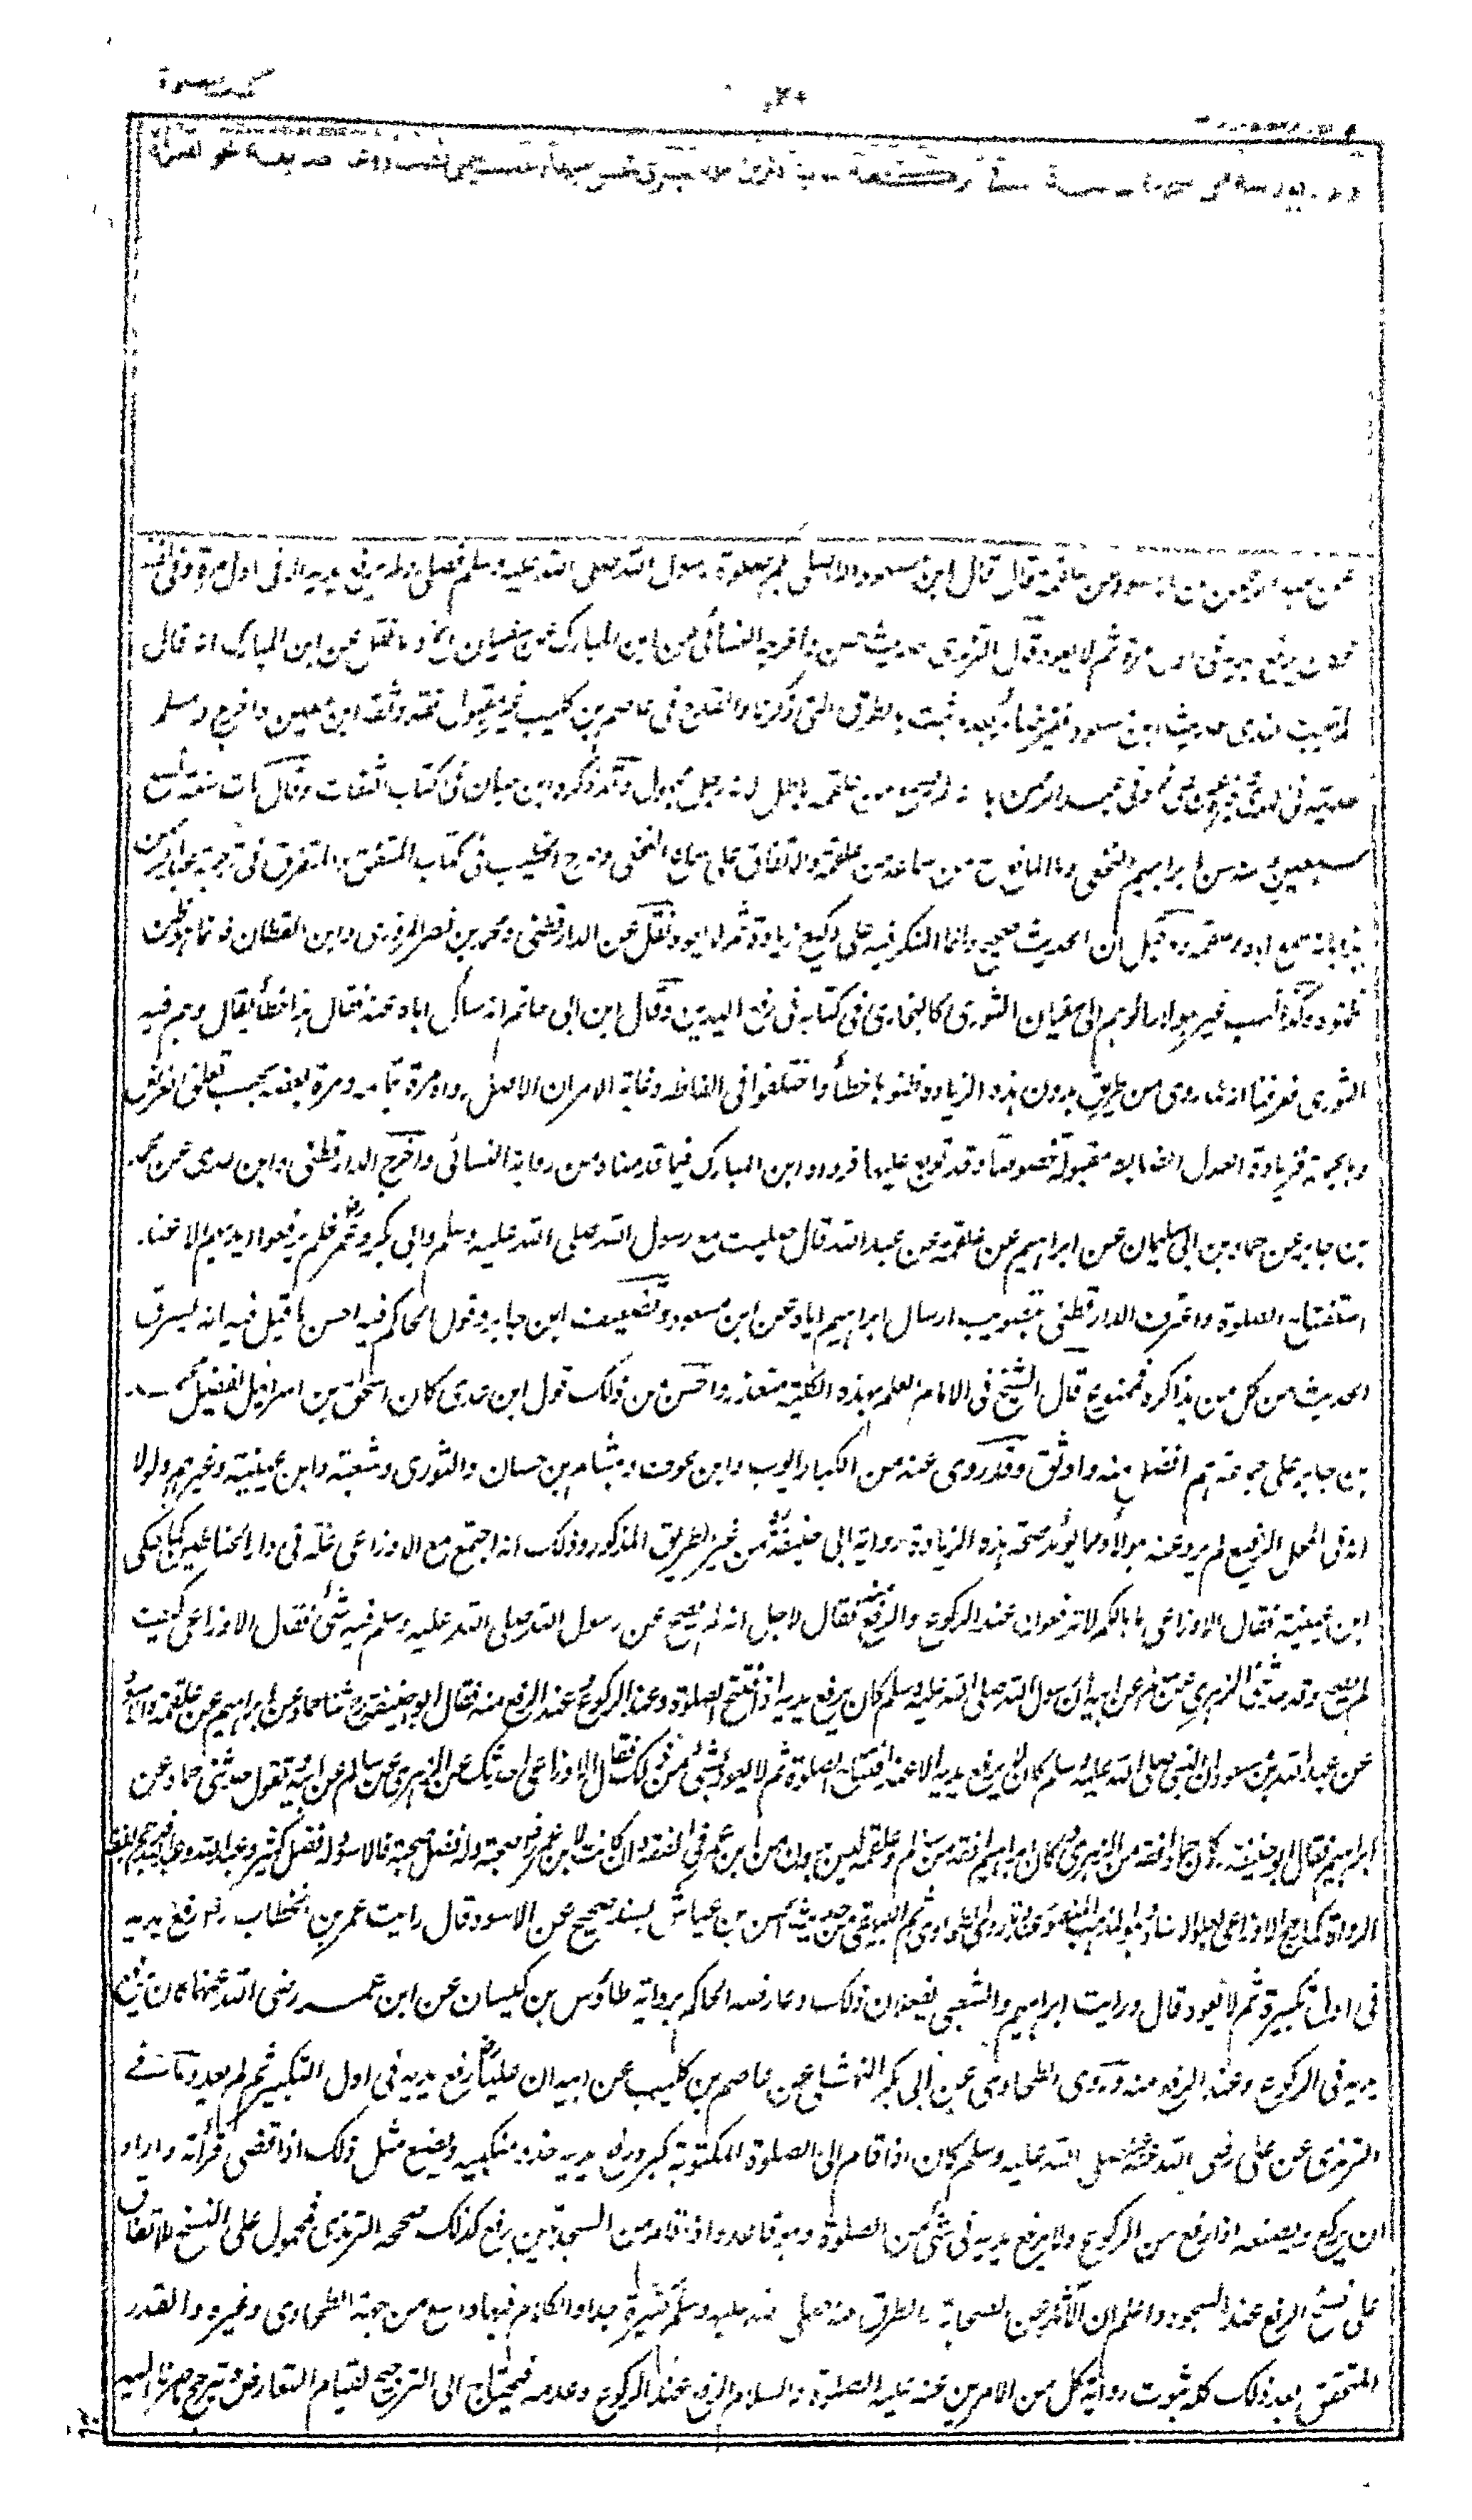 كتاب الصلوة
عن عبد الرحمن بن الاسود عن علقمة قال قال ابن مسعود الا اصلى بكم صلوة رسول الله صلى الله عليه وسلم فصلى ولم يرفع يديه الا فى اول مرة وفى لفظ
فكان يرفع يديه فى اول مرة ثم لا يعود قال الترمذى حديث حسن واخرجه النسائى عن ابن المبارك عن سفيان الخ وما نقل عن ابن المبارك انه قال
لم يثبت عندى حديث ابن مسعود فغير ضائر بعد ما ثبت بالطرق التى ذكرنا والقدح فى عاصم بن كليب غير مقبول فقد وثقه ابن معين واخرج له مسلم
حديثه فى الهدى وغيره عن على وفى عبد الرحمن بانه لم يسمع من علقمة باطل لانه رجل مجهول وقد ذكره ابن حبان فى كتاب الثقات وقال مات سنة تسع
وتسعين سنه سن ابراهيم النخعى وما المانع من سماعه من علقمة والاتفاق على سماع النخعى وصرح الخطيب فى كتاب المتفق والمفترق فى ترجمة عبد الرحمن
هذا بانه سمع اباه وعلقمة وما قيل ان الحديث صحيح وانما المنكر فيه على وكيع زيادة ثم لا يعود نقل عن الدارقطنى ومحمد بن نصر المروزى وابن القطان فانما هو ظن
ظنوه ولذا نسب غير هؤلاء الوهم الى سفيان الثورى كالبخارى فى كتابه فى رفع اليدين وقال ابن ابى حاتم انه سأل اباه عنه فقال هذا خطأ يقال وهم فيه
الثورى فعرفنا انه لما روى من طريق بدون هذه الزيادة ظنوها خطأ واختلفوا فى الغالط وغاية الامر ان الاصل رواه مرة بتمامه ومرة بعضه بحسب تعلق الغرض
وبالجملة فزيادة العدل الضابط مقبولة خصوصا وقد توبع عليها فرواه ابن المبارك فيما قدمناه من رواية النسائى واخرج الدارقطنى وابن عدى عن محمد
بن جابر عن حماد بن ابى سليمان عن ابراهيم عن علقمة عن عبد الله قال صليت مع رسول الله صلى الله عليه وسلم وابى بكر وعمر فلم يرفعوا ايديهم الا عند
استفتاح الصلوة واعترف الدارقطنى بتصويب ارسال ابراهيم اياه عن ابن مسعود وتضعيف ابن جابر وقول الحاكم فيه احسن ما قيل فيه انه يسرق
الحديث من كل من يذاكره فممنوع قال الشيخ فى الامام العلم بهذه الكلية متعذر واحسن من ذلك قول ابن عدى كان اسحق بن اسرائيل يفضل محمد
بن جابر على جماعة هم افضل منه واوثق وقد روى عنه من الكبار ايوب وابن عون وهشام بن حسان والثورى وشعبة وابن عيينة وغيرهم ولولا
انه فى المحل الرفيع لم يرو عنه هؤلاء ومما يؤيد صحة هذه الزيادة رواية ابى حنيفة من غير الطريق المذكور وذلك انه اجتمع مع الاوزاعى بمكة فى دار الحناطين كما حكى
ابن عيينة فقال الاوزاعى ما بالكم لا ترفعون عند الركوع والرفع منه فقال لاجل انه لم يصح عن رسول الله صلى الله عليه وسلم فيه شئ فقال الاوزاعى كيف
لم يصح وقد حدثنى الزهرى عن سالم عن ابيه ان رسول الله صلى الله عليه وسلم كان يرفع يديه اذا افتتح الصلوة وعند الركوع وعند الرفع منه فقال ابو حنيفة حدثنا حماد عن ابراهيم عن علقمة والاسود
عن عبد الله بن مسعود ان النبى صلى الله عليه وسلم كان لا يرفع يديه الا عند افتتاح الصلوة ثم لا يعود لشئ من ذلك فقال الاوزاعى احدثك عن الزهرى عن سالم عن ابيه وتقول حدثنى حماد عن
ابراهيم فقال ابو حنيفة كان حماد افقه من الزهرى وكان ابراهيم افقه من سالم وعلقمة ليس بدون من ابن عمر فى الفقه وان كانت لابن عمر صحبة وله فضل صحبة فالاسود له فضل كثير وعبد الله عبد الله فرجح بفقه
الرواة كما رجح الاوزاعى بعلو الاسناد وهو المذهب المنصور وقد روى الطحاوى ثم البيهقى من حديث الحسن بن عياش بسند صحيح عن الاسود قال رايت عمر بن الخطاب رفع يديه
فى اول تكبيرة ثم لا يعود قال ورايت ابراهيم والشعبى يفعلان ذلك وعارضه الحاكم برواية طاؤس بن كيسان عن ابن عمر رضى الله عنهما كان يرفع
يديه فى الركوع وعند الرفع منه وروى الطحاوى عن ابى بكر النهشلى عن عاصم بن كليب عن ابيه ان عليا رفع يديه فى اول التكبير ثم لم يعد وما فى
الترمذى عن على رضى الله عنه صلى الله عليه وسلم كان اذا قام الى الصلوة المكتوبة كبر ورفع يديه حذو منكبيه ويصنع مثل ذلك اذا قضى قرأته واراد
ان يركع ويصنعه اذا رفع من الركوع ولا يرفع يديه فى شئ من الصلوة وهو قاعد واذا قام من السجدتين رفع كذلك صححه الترمذى فمحمول على النسخ للاتفاق
على نسخ الرفع عند السجود واعلم ان الآثار عن الصحابة والطرق عنه صلى الله عليه وسلم كثيرة جدا والكلام فيها واسع من جهة الطحاوى وغيره والقدر
المتحقق بعد ذلك كله ثبوت رواية كل من الامرين عنه عليه الصلوة والسلام الرفع عند الركوع وعدمه فيحتاج الى الترجيح لقيام التعارض ويترجح ما صرنا اليه